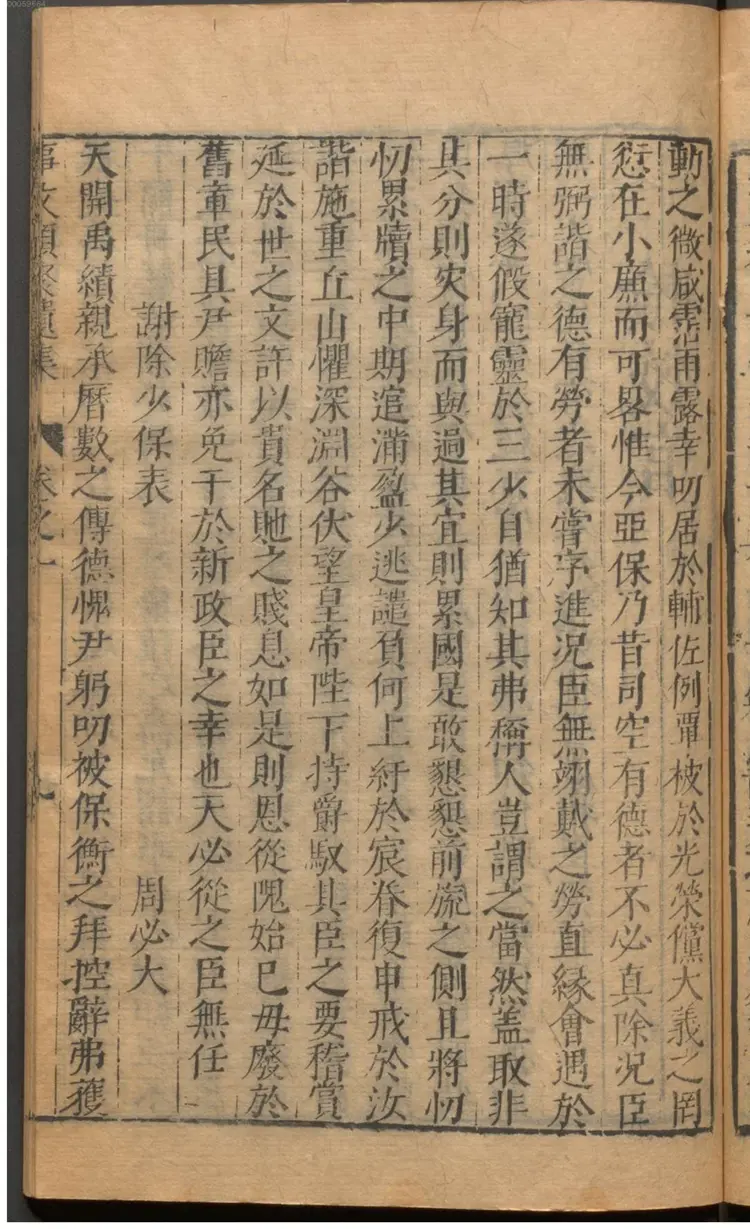 動之微咸霑雨露幸叨居於輔佐例覃被於光榮儻大義之罔
愆在小廉而可畧惟今亞保乃昔司空有德者不必真除况臣
無弼諧之德有勞者未嘗序進况臣無翊戴之勞直緣會遇於
一時遂假寵靈於三少自猶知其弗稱人豈謂之當然盖取非
其分則灾身而與過其宜則累國是敢懇懇前旒之側且將忉
忉累牘之中期逭滿盈少逃譴負何上紆於宸眷復申戒於汝
諧施重丘山懼深淵谷伏望皇帝陛下持爵馭其臣之要稽賞
延於世之文許以貴名貤之賤息如是則恩從隗始已毋廢於
舊章民具尹瞻亦免干於新政臣之幸也天必從之臣無任
謝除少保表 周必大
天開禹績親承曆數之傳德惟尹躬叨被保衡之拜控辭弗獲
事文類聚遺集 卷之一 九
000052664